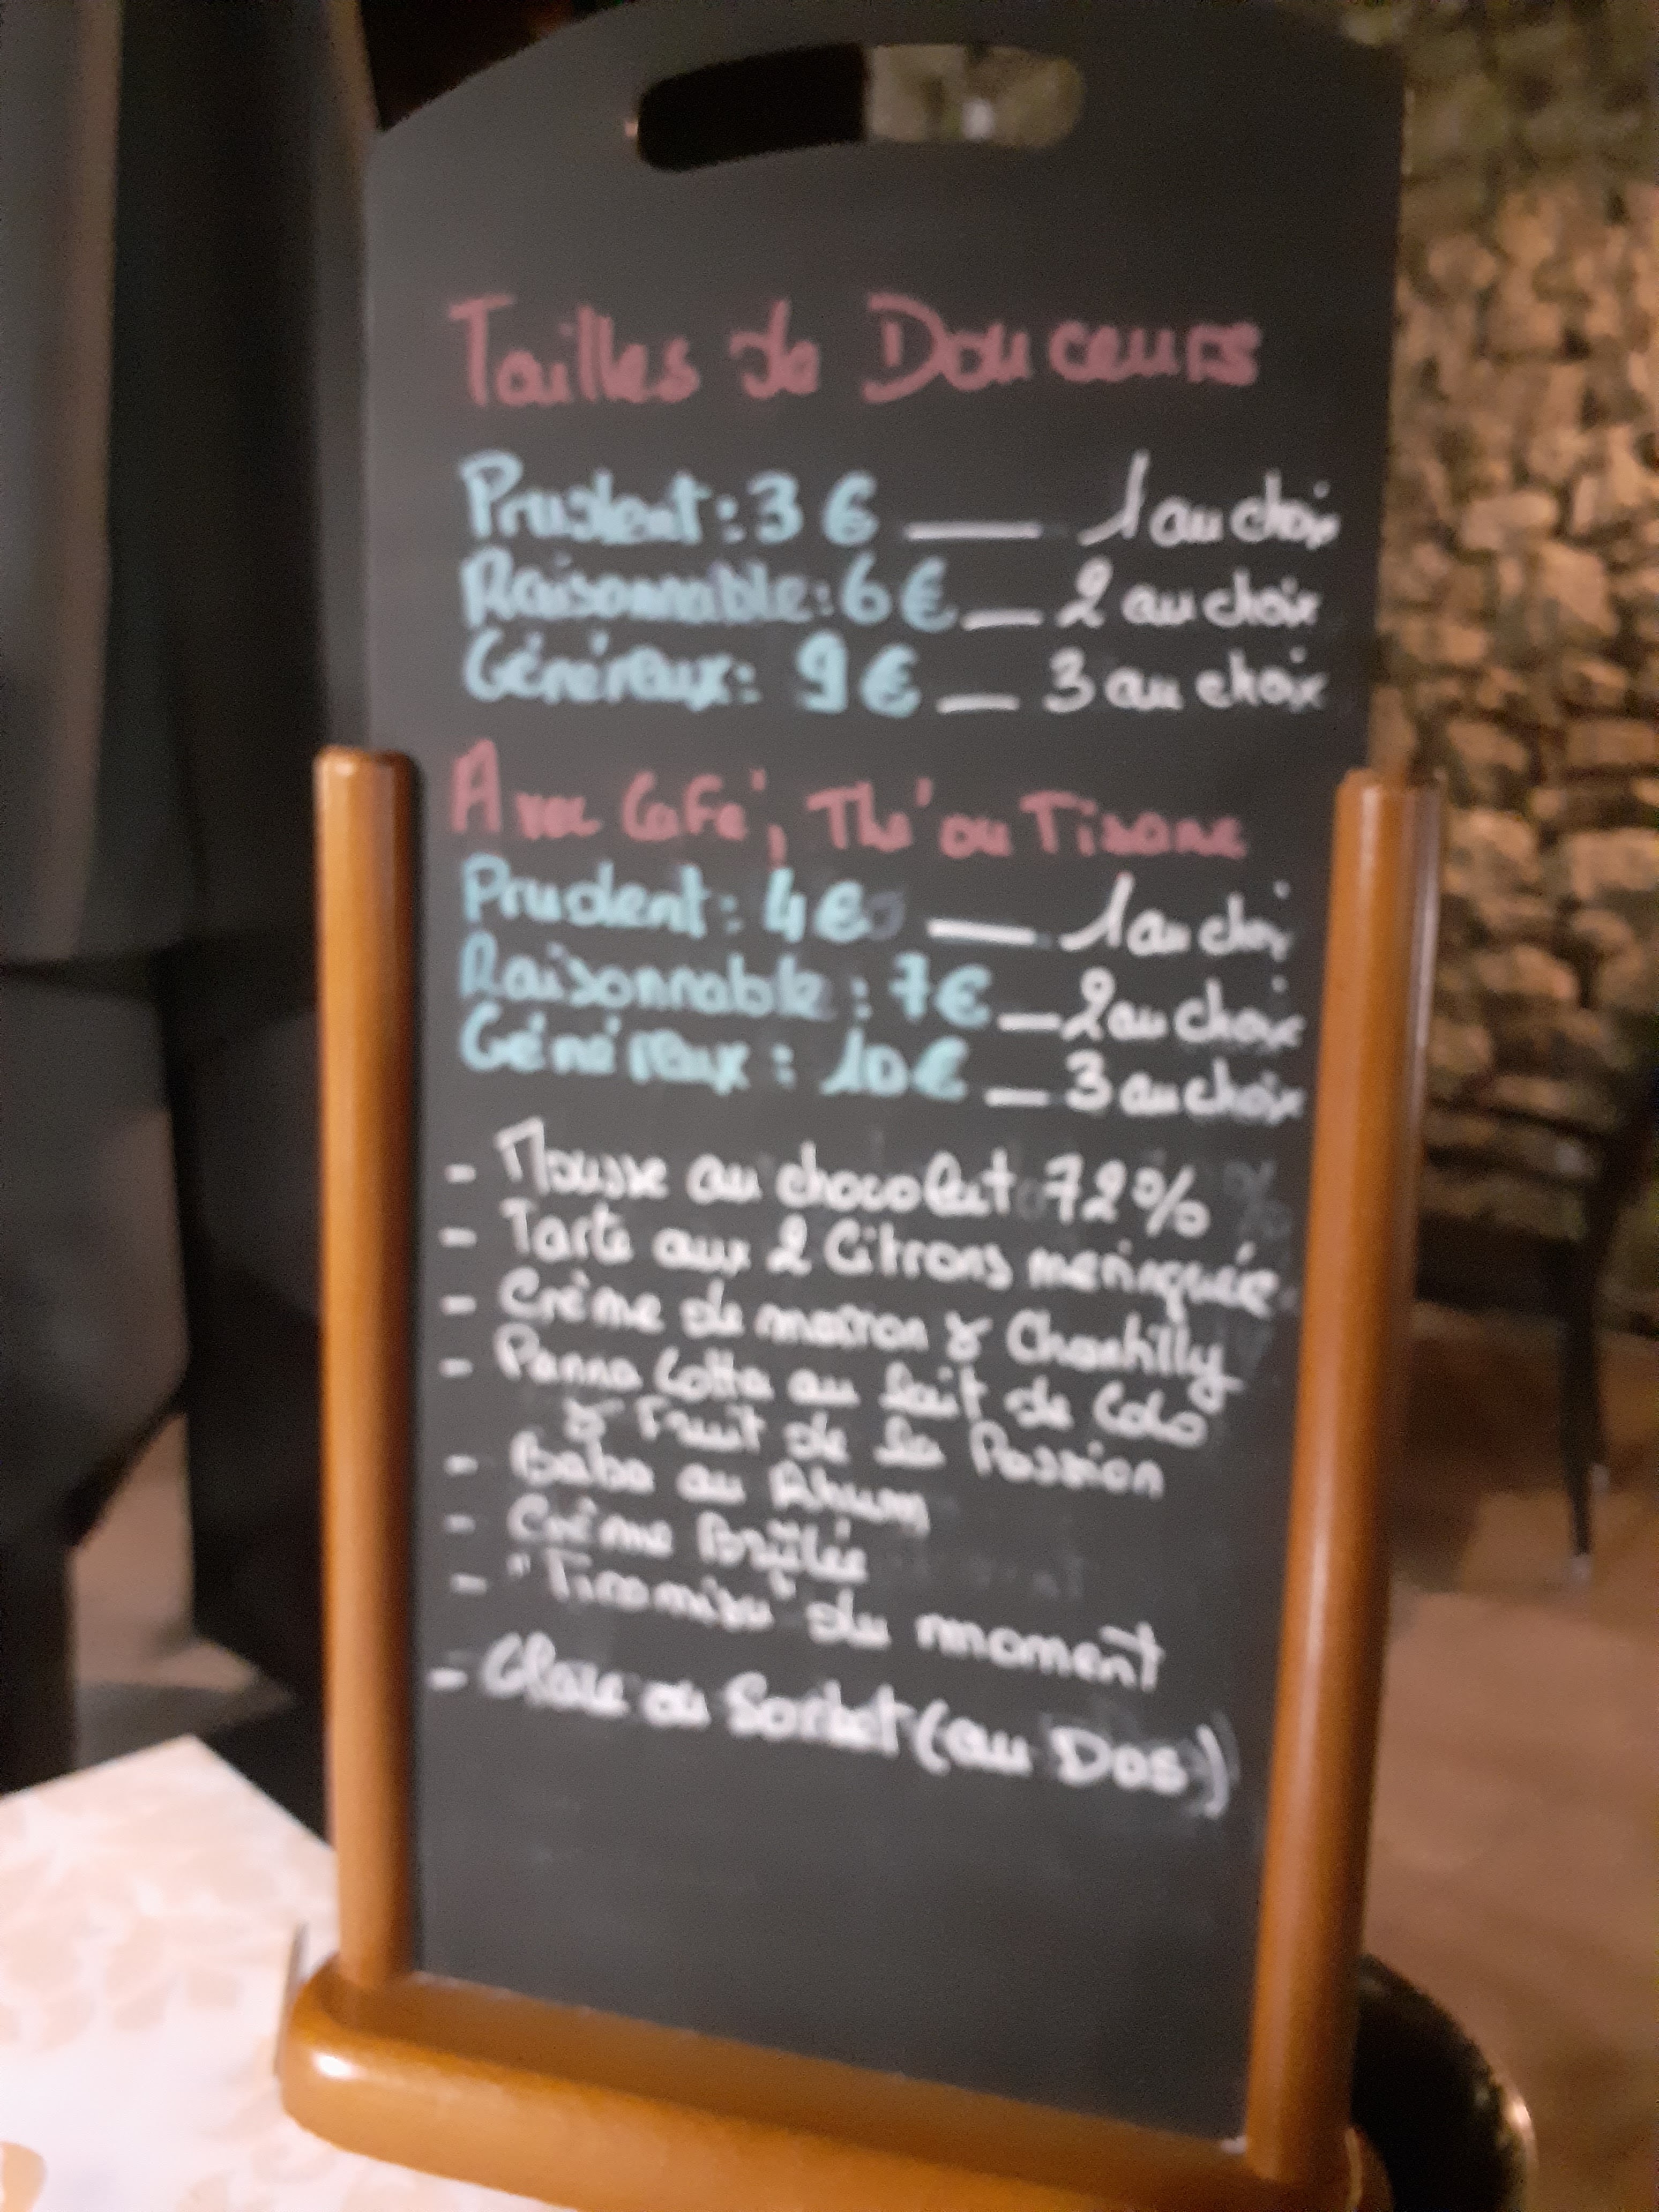 Tailles de Douceurs
Prudent : 3 € — 1 au choix
Raisonnable : 6 € — 2 au choix
Généreux : 9 € — 3 au choix
Avec Café, Thé ou Tisane
Prudent : 4 € — 1 au choix
Raisonnable : 7 € — 2 au choix
Généreux : 10 € — 3 au choix
- Mousse au chocolat 72 %
- Tarte aux 2 Citrons meringuée
- Crème de marron & Chantilly
- Panna Cotta au lait de Coco
& Fruit de la Passion
- Baba au Rhum
- Crème Brûlée
- "Tiramisu" du moment
- Glace ou Sorbet (au Dos)